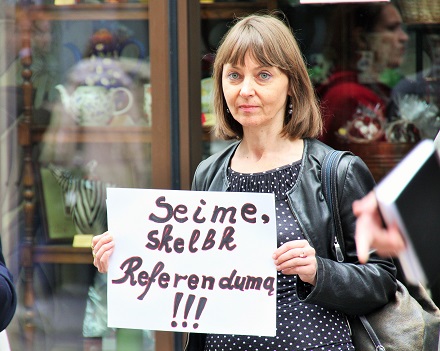 Seime,
skelbk
Referendumą
!!!